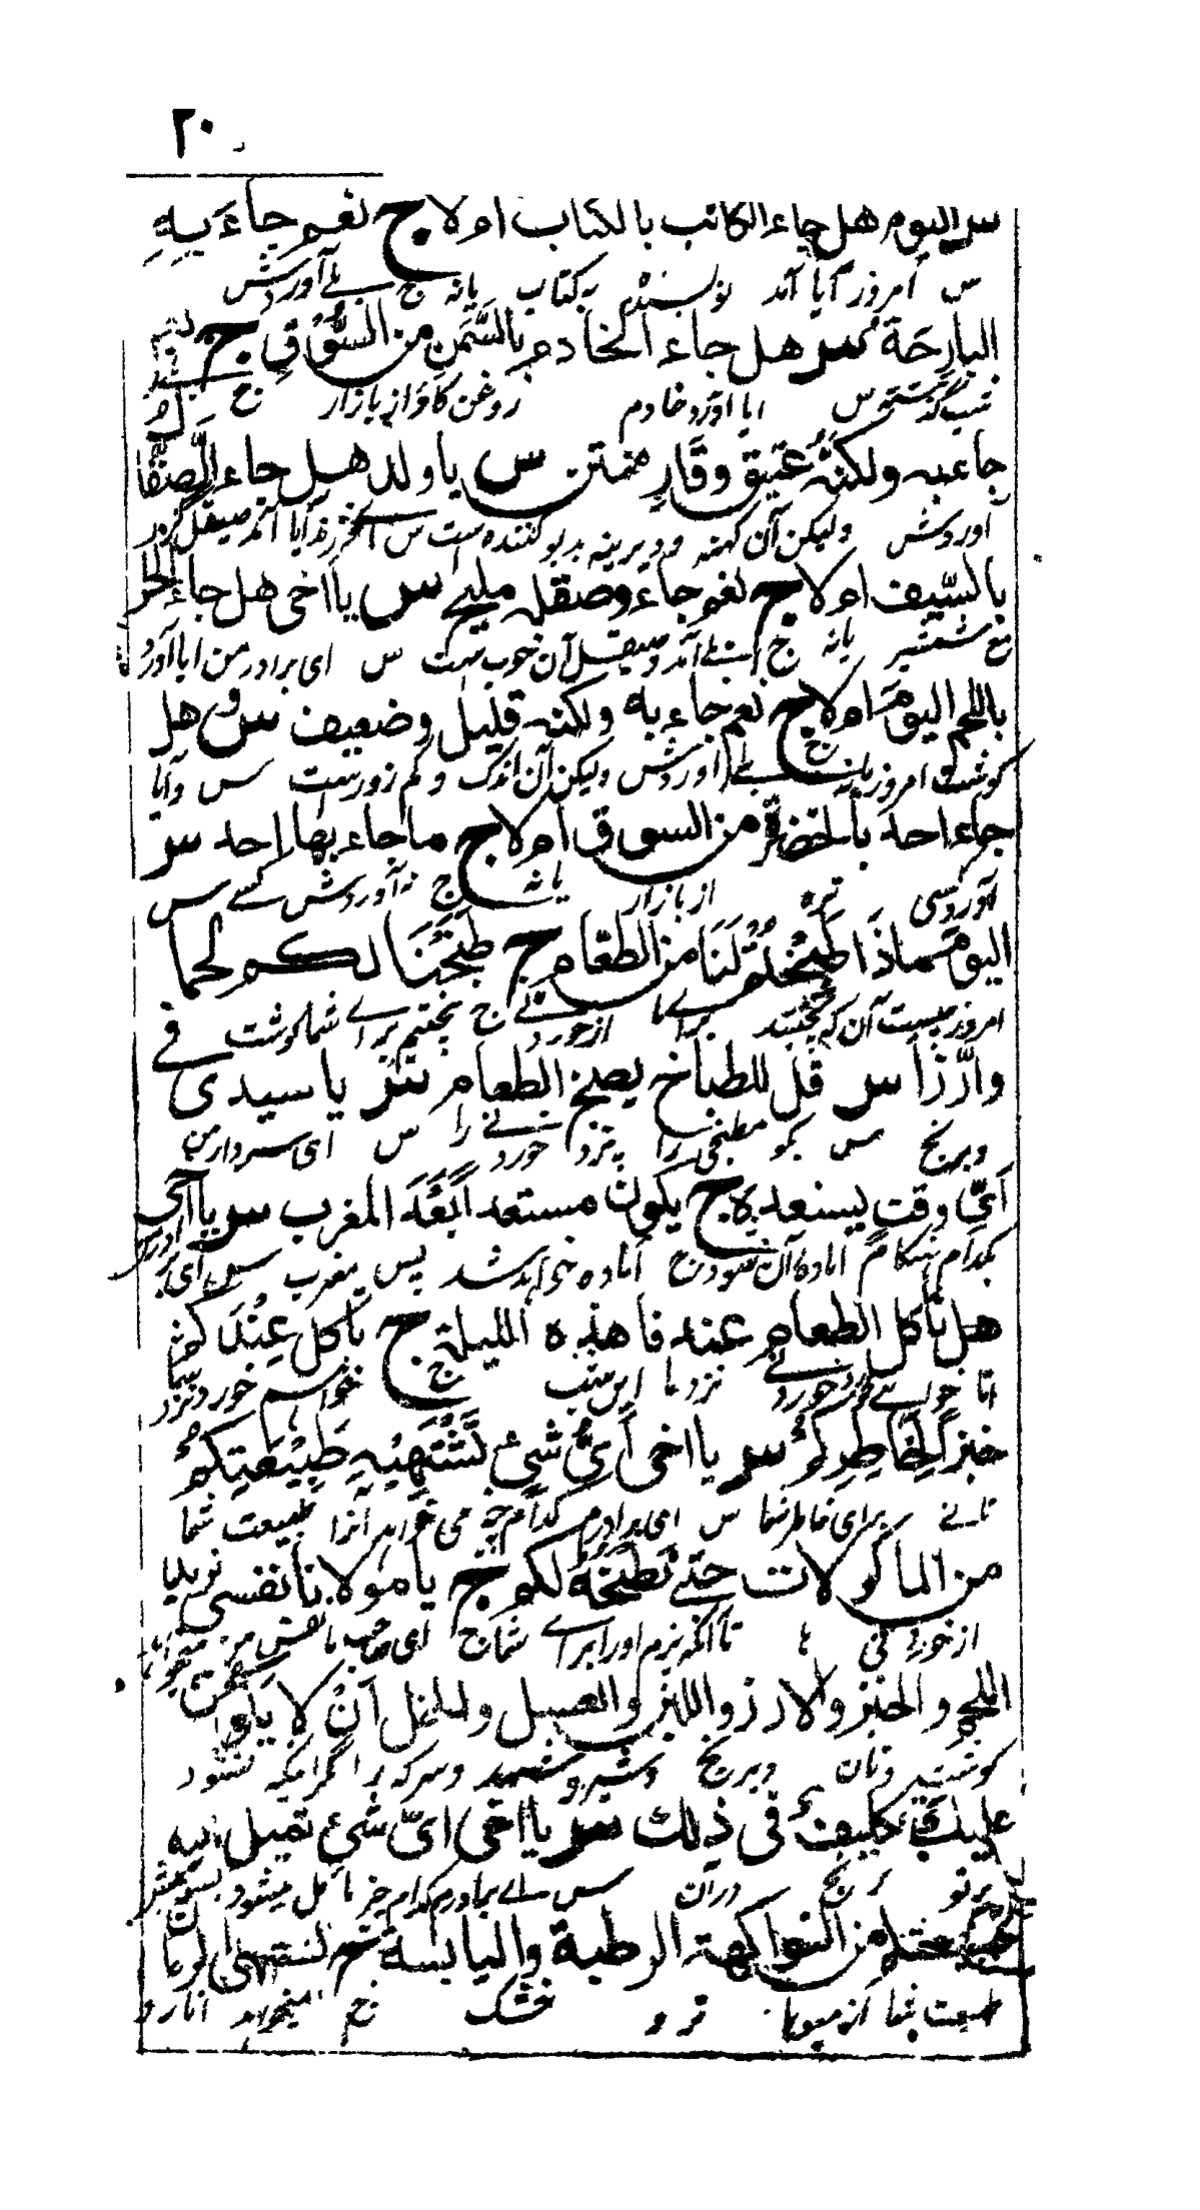 ٢٠
س اليوم هل جاء الكاتب بالكتاب ام لا ج نعم جاءَ بِهِ
س امروز آیا آمد نویسنده به کتاب یا نه ج بلے آوردش
البارِحَة س هل جاء الخادم بالسَّمَنِ من السُّوْقِ ج نعم
شب گذشته س ایا آورد خادم روغن گاو از بازار ج
جاء به ولكنّهُ عَتيق وقَارِ منتن س يا ولد هل جاء الصقّال
آوردش ولیکن آن کهنه و دیرینه بدبو کننده است س ای فرزند آیا آمد صیقل گر
بالسّيف ام لا ج نعم جاء وصقله مليح س يا اخى هل جاء
شمشیر یا نه ج بلے آمد و صیقل آن خوب ست س ای برادر من ایا آورد
باللحم اليومَ ام لا ج نعم جاء به ولكنه قليل وضعيف س وهل
گوشت امروز یا نه ج بلے آوردش ولیکن آن اندک و کم زورست س و آیا
جاء احد بالخضرة من السوق ام لا ج ما جاء بها احد س
آورد کسی تره از بازار یا نه ج نه آوردش کسے س
اليوم ماذَا طبختُم لَنَا من الطعام ج طَبَخْنَا لكم لحما
امروز چیست آن که پختید برای ما از خوردنے ج پختیم براے شما گوشت
وارُزّا س قُل للطباخ يصلح الطعام س يا سيدى فى
و برنج س بگو مطبخی را به پزد خوردنے را س ای سردار من
اَىّ وقت يستعد به ج يكون مستعد ابَعْدَ المغرب س يا اخى
بکدام هنگام آماده آن شود ج آماده خواهد شد پس مغرب س ای برادر
هل نأكل الطعام عندنا هذه الليلة ج نأكل عِنْدَكم
ایا خوردنے نزد ما این شب ج خواهیم خورد نزد شما
خبزاً لِخَاطِرِكُم س يا اخى اَىُّ شىءٍ تَشْتَهِيْهِ طَبِيْعَتِكُمُ
نانے برای خاطر شما س ای برادرم کدام چیز می خواهد آنرا طبیعت شما
من الماكولات حتے نطبخهُ لكم ج يا مولانا نفسى تريد
از خوردنی ها تا آنکه بپزم او را براے شما ج ای صاحب ما نفس من میخواهد
اللحم والخبز والارز واللبن والعسل والخل اَنْ لا يكون
گوشت و نان و برنج و شیر و شهد و سرکه را اگر اینکه نشود
عليك تكليف فى ذلك س يا اخى اىّ شىءٍ تميل اليه
بر تو رنج در آن س اے برادرم کدام چیز مائل میشود بسویش
طبيعتكم من الفواكهة الرطبة واليابسة ج تشتهى الرمان
طبیعت شما از میوها تر و خشک ج میخواهد انار و